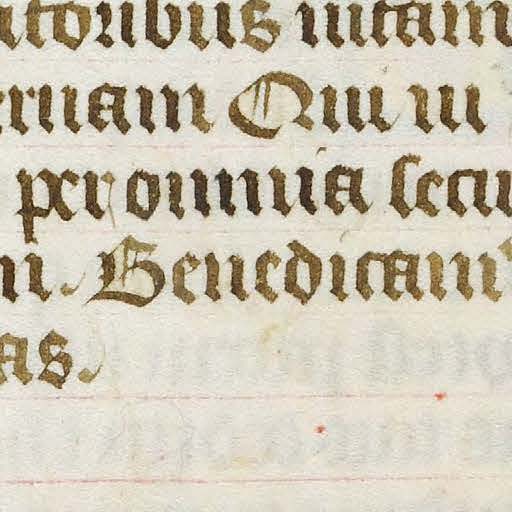 atoribus uitam
ernam Qui ui
per omnia secu
m. Benedicam
as.